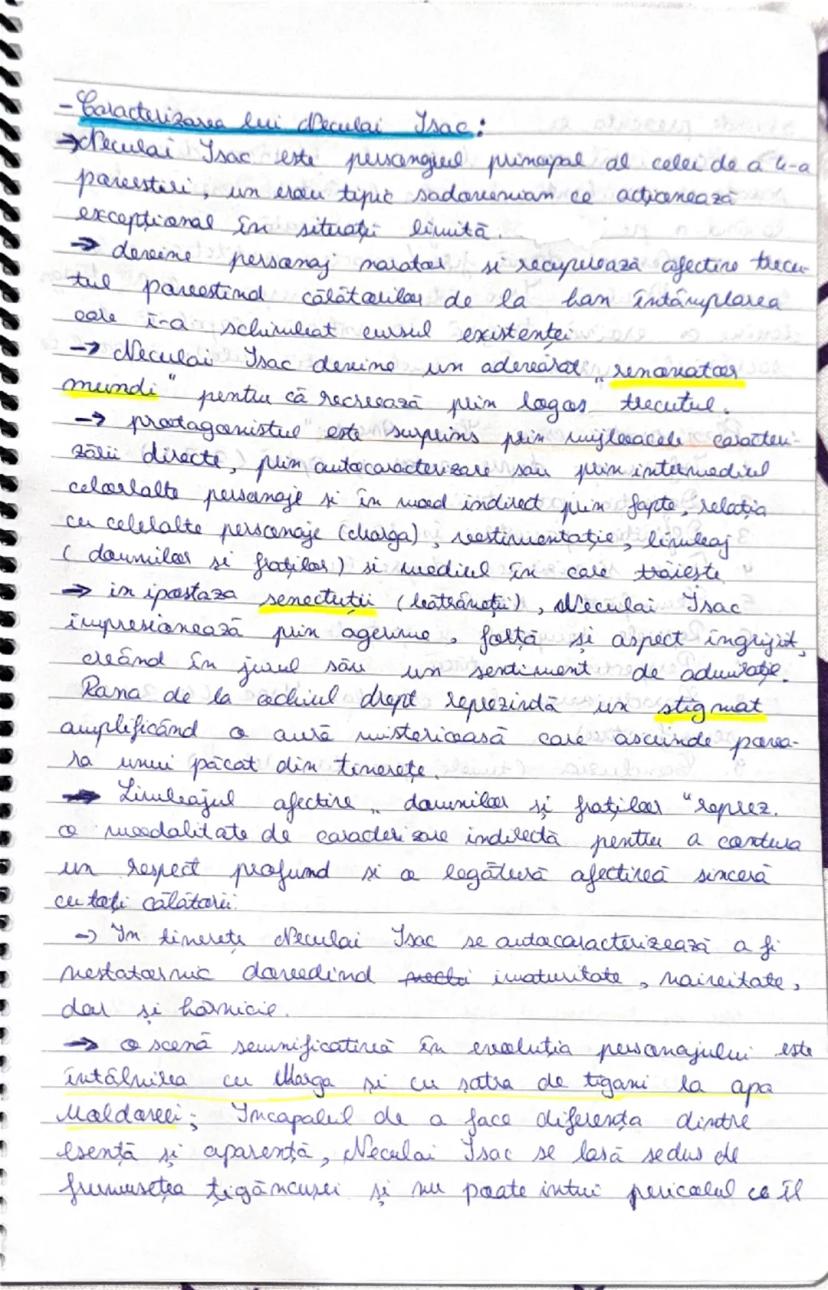 - Caracterizarea lui Neculai Isac:
→ Neculai Isac este personajul principal al celei de a 4-a
povestiri, un erou tipic sadovenian ce acționează
excepțional în situații limită.
→ devine personaj narator și recuperează afectiv trecu-
tul povestind călătorilor de la han întâmplarea
care i-a schimbat cursul existenței
→ Neculai Isac devine un adevărat "renovator
mundi" pentru că recreează prin logos trecutul.
→ protagonistul este surprins prin mijloacele caracteri-
zării directe, prin autocaracterizare sau prin intermediul
celorlalte personaje si în mod indirect prin fapte, relația
cu celelalte personaje (Marga), vestimentație, limbaj
(domnilor si fraților) si mediul în care trăiește
→ in ipostaza senectuții (bătrâneții), Neculai Isac
impresionează prin agerime, forță și aspect îngrijit,
creând în jurul său un sentiment de admirație.
Rana de la ochiul drept reprezindă un stigmat
amplificând o aură misterioasă care ascunde pova-
ra unui păcat din tinerețe.
→ Limbajul afectiv "domnilor și fraților" reprez.
o modalitate de caracterizare indirectă pentru a contura
un respect profund si o legătură afectivă sinceră
cu toți călătorii.
→ In tinerețe Neculai Isac se autocaracterizează a fi
nestatornic dovedind imaturitate, naivitate,
dar și hărnicie.
→ o scenă semnificativă în evoluția personajului este
întâlnirea cu Marga si cu satra de tigani la apa
Moldovei; Incapabil de a face diferența dintre
esență și aparență, Neculai Isac se lasă sedus de
frumusețea țigăncusei și nu poate intui pericolul ce îl